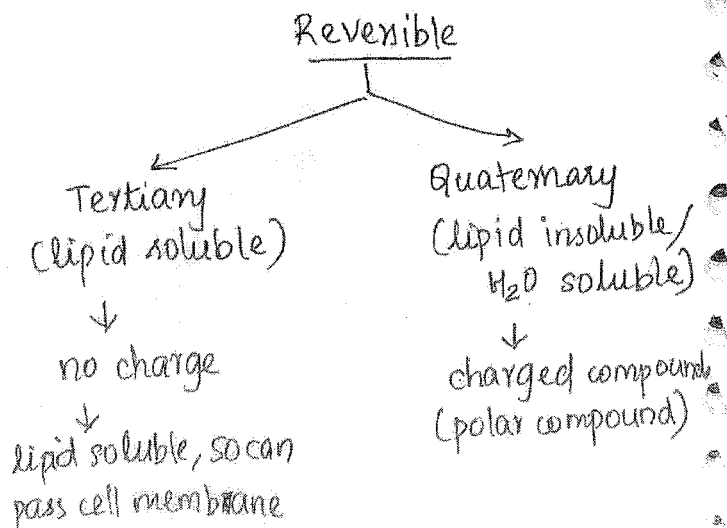 Reversible
Tertiary
(lipid soluble)
↓
no charge
↓
lipid soluble, so can
pass cell membrane
Quaternary
(lipid insoluble/
H₂O soluble)
↓
charged compounds
(polar compound)